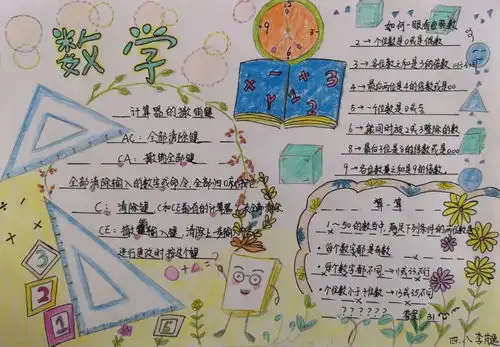 数学
计算器的撤销键
AC：全部清除键
CA：撤销全部键
全部清除输入的数字或命令，全部归0
C：清除键
CE：
进行更改时按这个键
如何一眼看
2→个位数是0或是偶数
3→各位数之和是3的倍数
4→最后两位是4的倍数或是00
5→个位数是0或5
6→能同时被2或3整除的数
8→最后3位是8的倍数或是000
9→各自数量之和是9的倍数
算算
1～50的数当中，满足下列条件的两位数是
·每个数字都是奇数
·每个数字都不同→11或33不行
·个位数小于十位数→13或35不可
? ? ? ? ? ?
答案：31
四.八